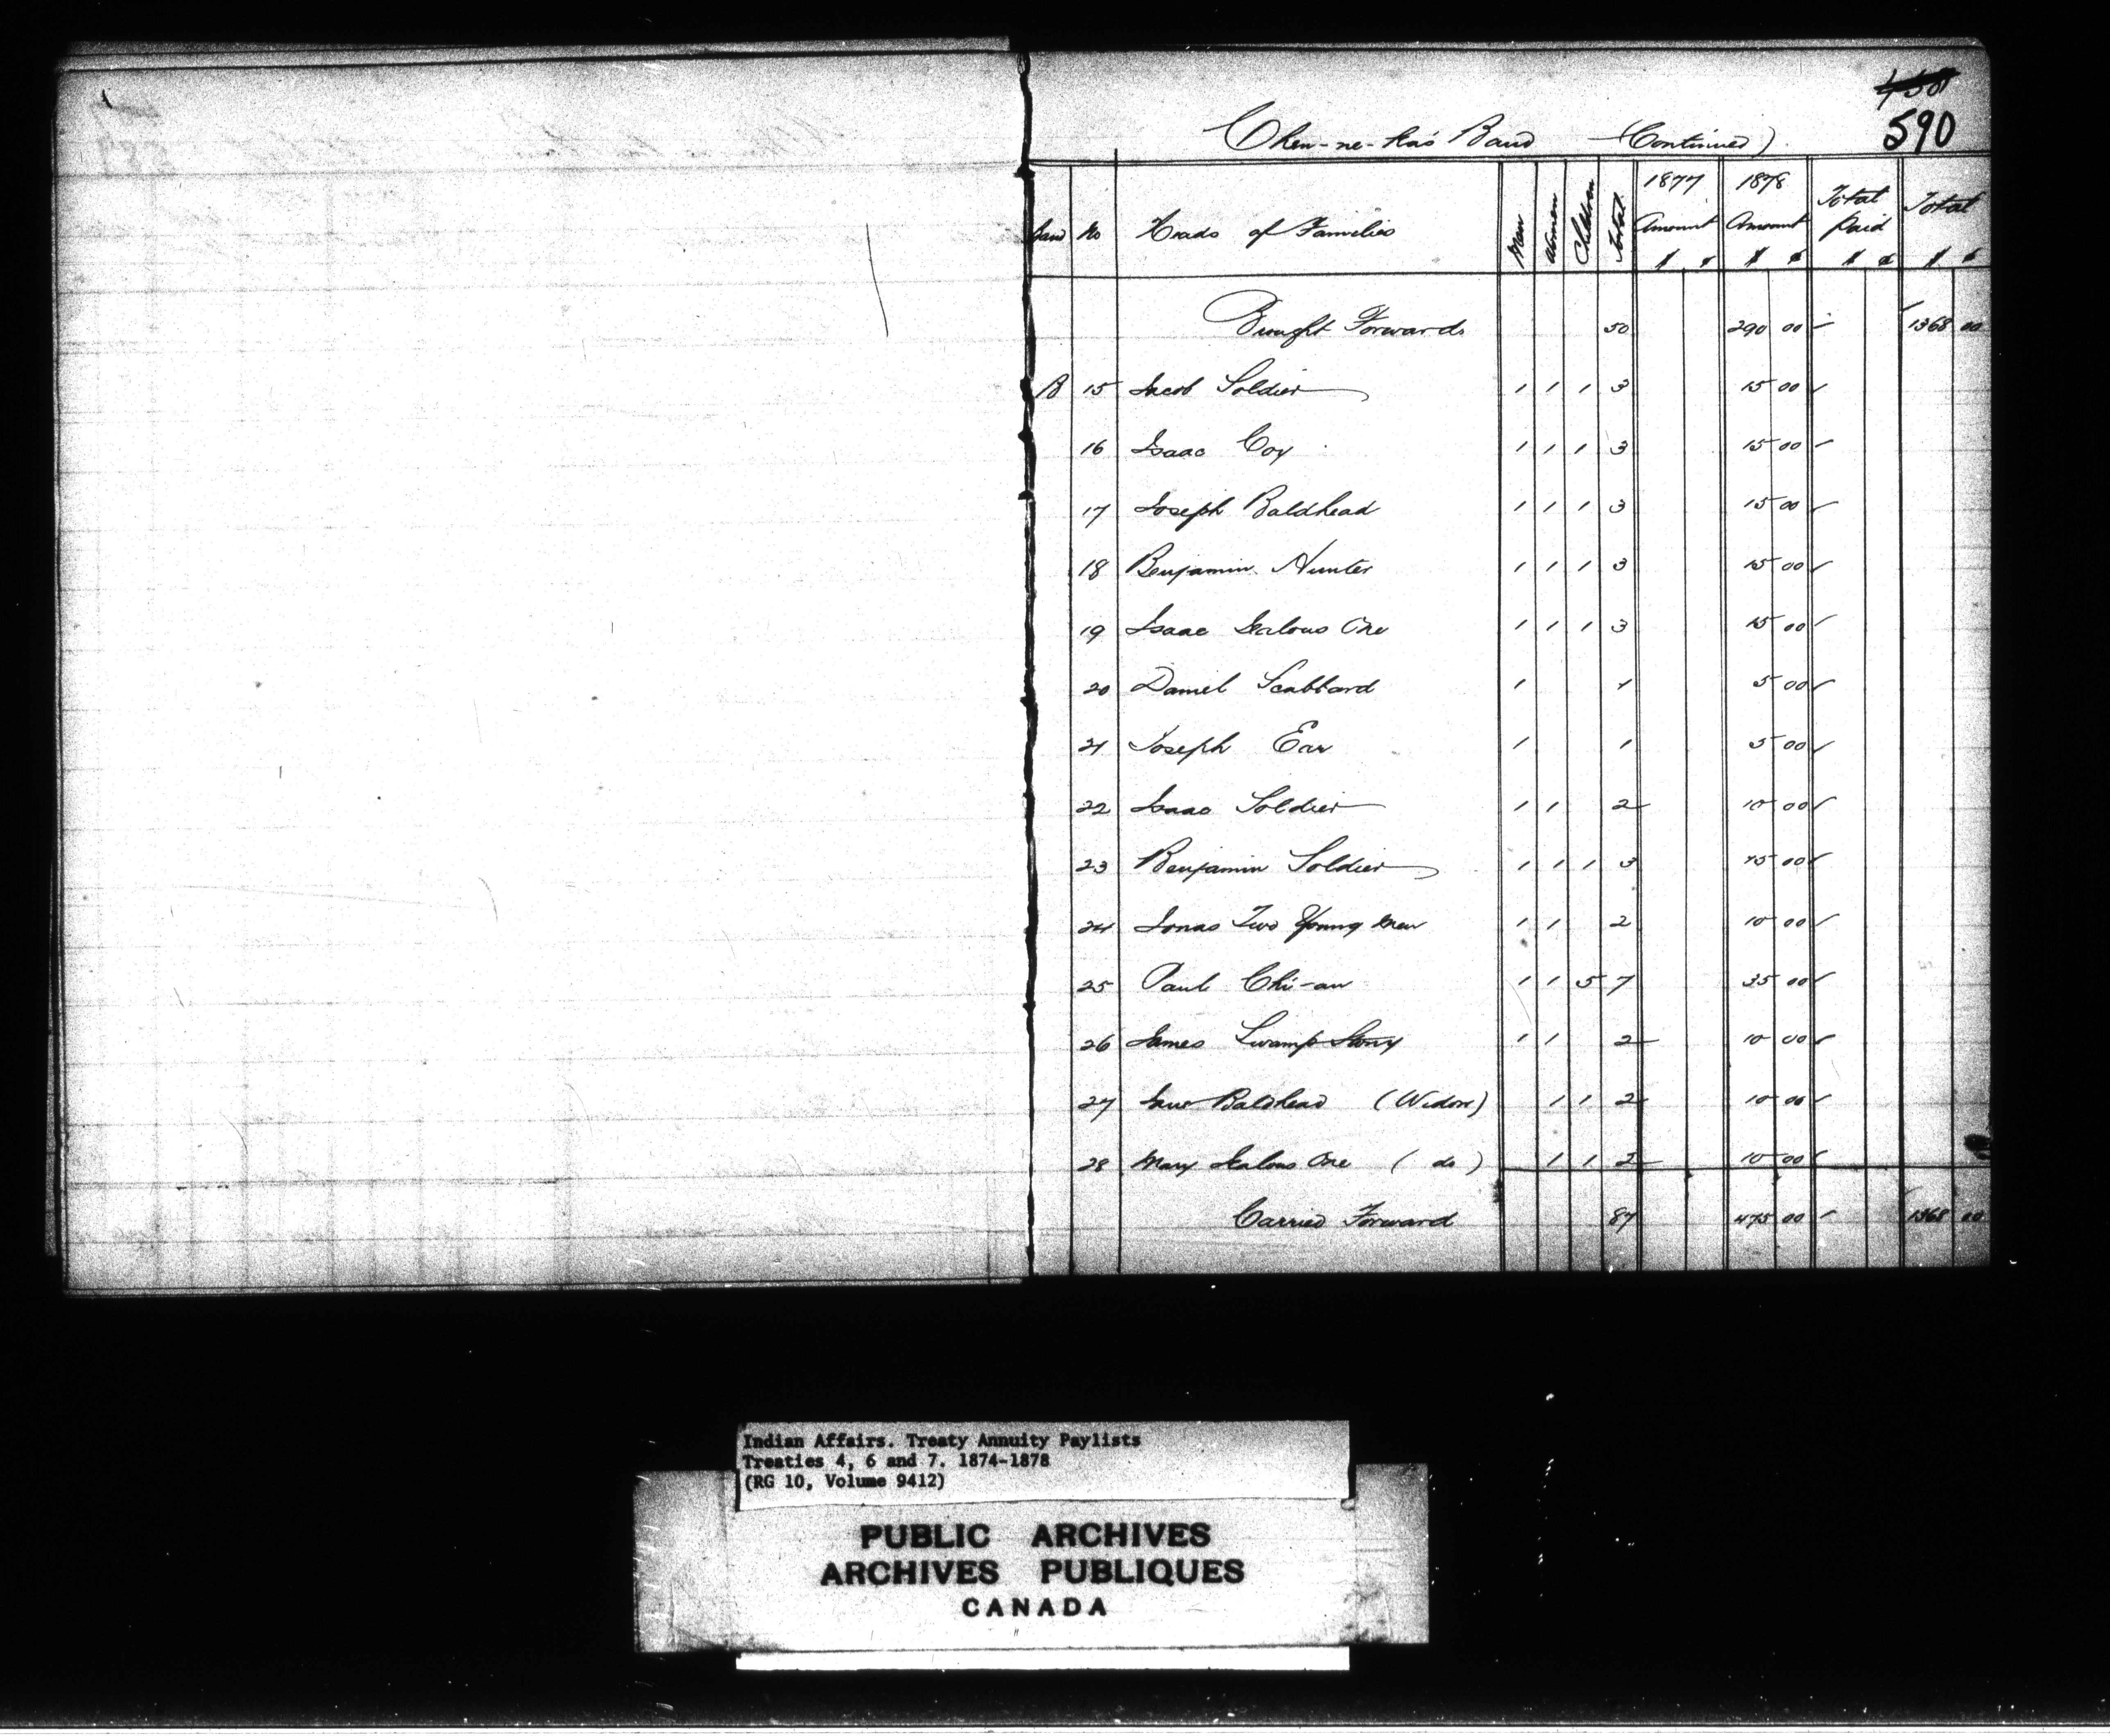 450
590
Chen-ne-ka's Band (Continued)
Band No Heads of Families Men Women Children Total 1877 Amount $ ¢ 1878 Amount $ ¢ Total Paid $ ¢ Total $ ¢
Brought Forwards 50 290 00 1368 00
B 15 Jacob Soldier 1 1 1 3 15 00
16 Isaac Coy 1 1 1 3 15 00
17 Joseph Baldhead 1 1 1 3 15 00
18 Benjamin Hunter 1 1 1 3 15 00
19 Isaac Jealous One 1 1 1 3 15 00
20 Daniel Scabbard 1 1 5 00
21 Joseph Ear 1 1 5 00
22 Isaac Soldier 1 1 2 10 00
23 Benjamin Soldier 1 1 1 3 15 00
24 Jonas Two Young Men 1 1 2 10 00
25 Paul Chi-an 1 1 5 7 35 00
26 James Swamp Stony 1 1 2 10 00
27 Jane Baldhead (Widow) 1 1 2 10 00
28 Mary Jealous One ( do ) 1 1 2 10 00
Carried Forward 87 475 00 1368 00
Indian Affairs. Treaty Annuity Paylists
Treaties 4, 6 and 7. 1874-1878
(RG 10, Volume 9412)
PUBLIC ARCHIVES
ARCHIVES PUBLIQUES
CANADA